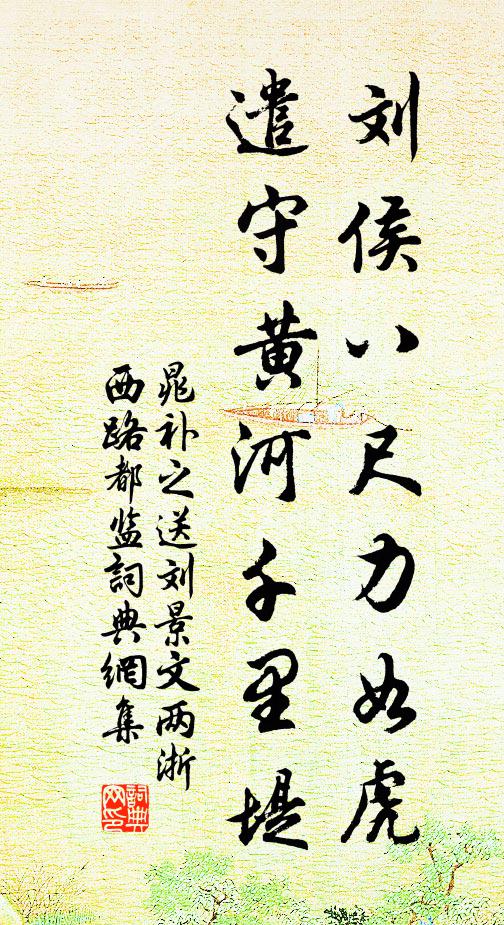 刘侯八尺力如虎
遣守黄河千里堤
晁补之送刘景文两浙
西路都监詞典網集
詞典
网印